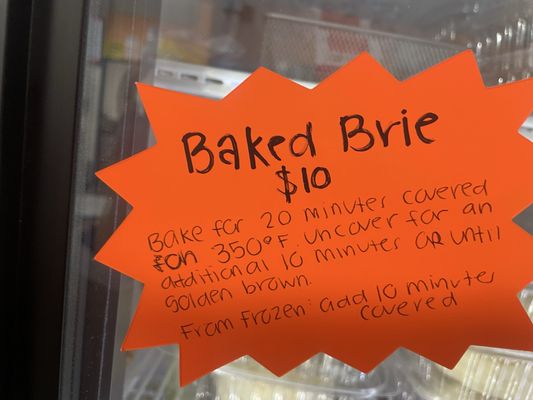 Baked Brie
$10
Bake for 20 minutes covered
on 350°F. uncover for an
additional 10 minutes OR until
golden brown.
From Frozen: add 10 minutes
covered